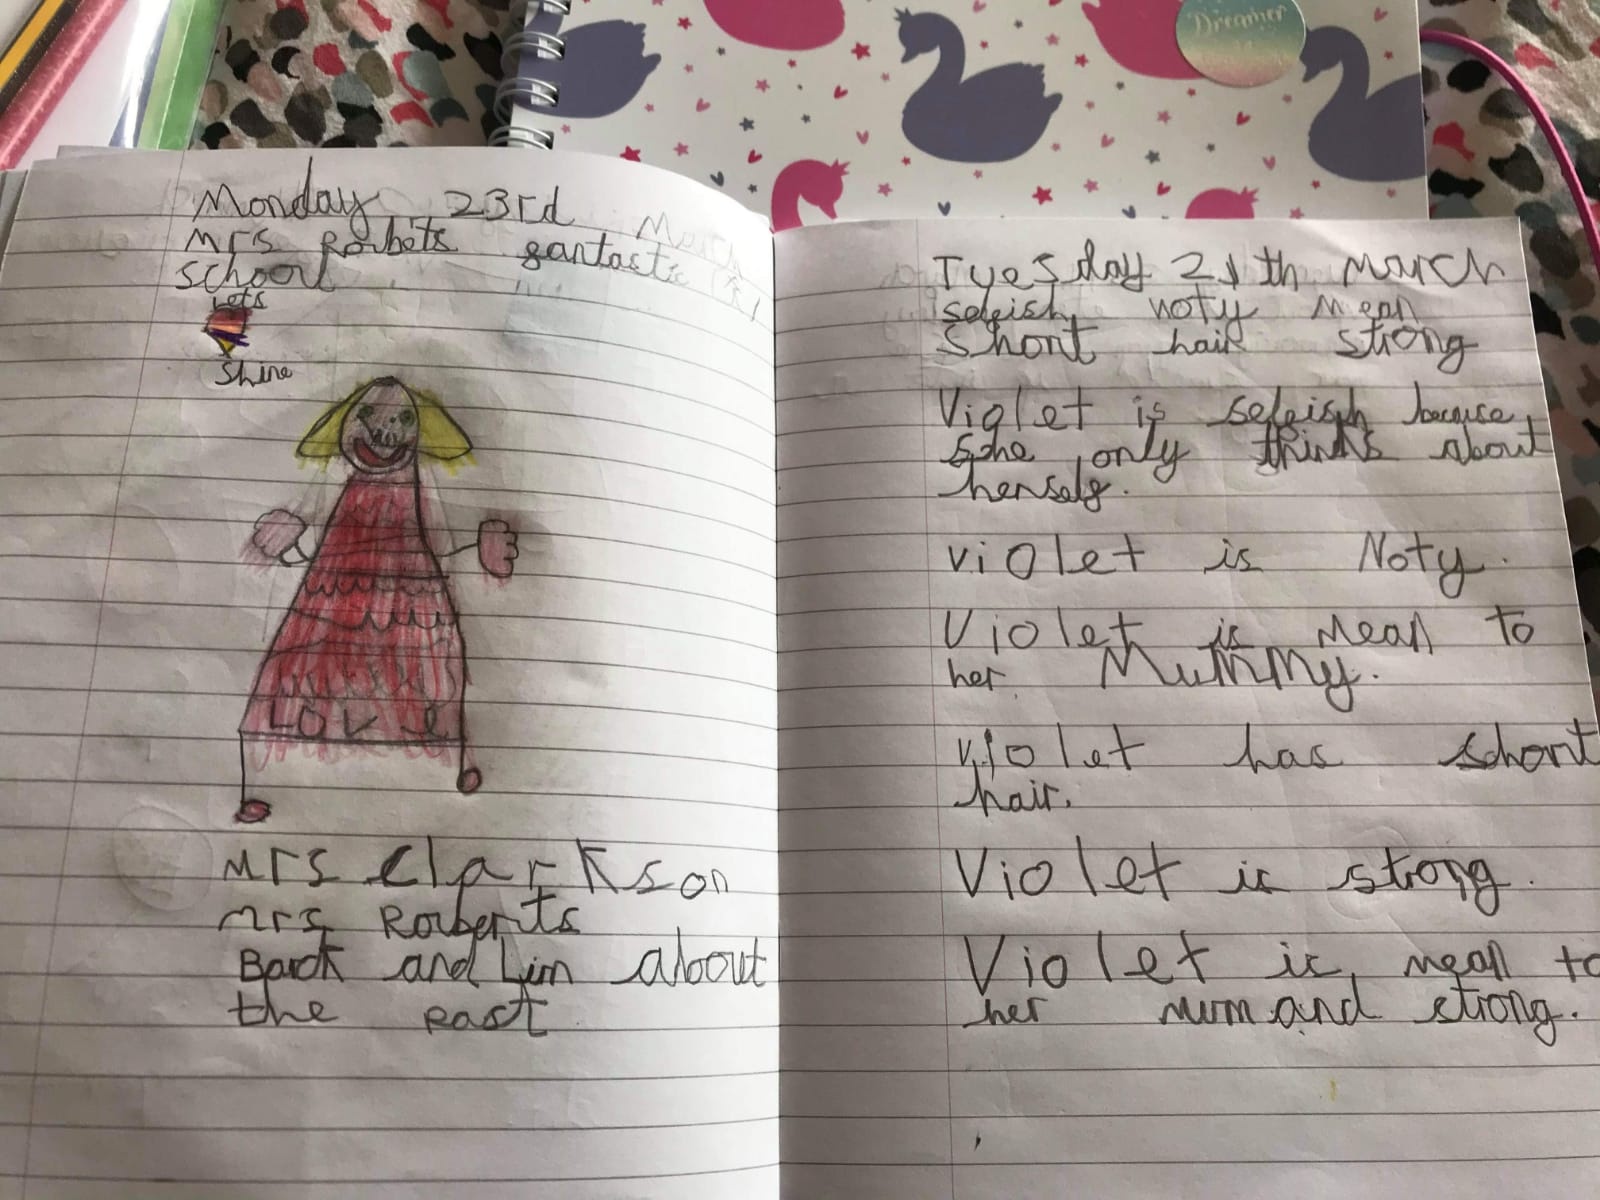 Dreamer
Monday 23rd March
Mrs Rorbets gantastic
school
Lets
Shine
LOVE
Mrs Clarkson
Mrs Roberts
and Lim about
the past
Tyesday 21th March
selgish noty mean
short hair strong
Violet is selgish because
she only thinks about
herselg.
violet is Noty.
Violet is mean to
her Mummy.
violet has short
hair.
Violet is strong.
Violet is mean to
her mum and strong.